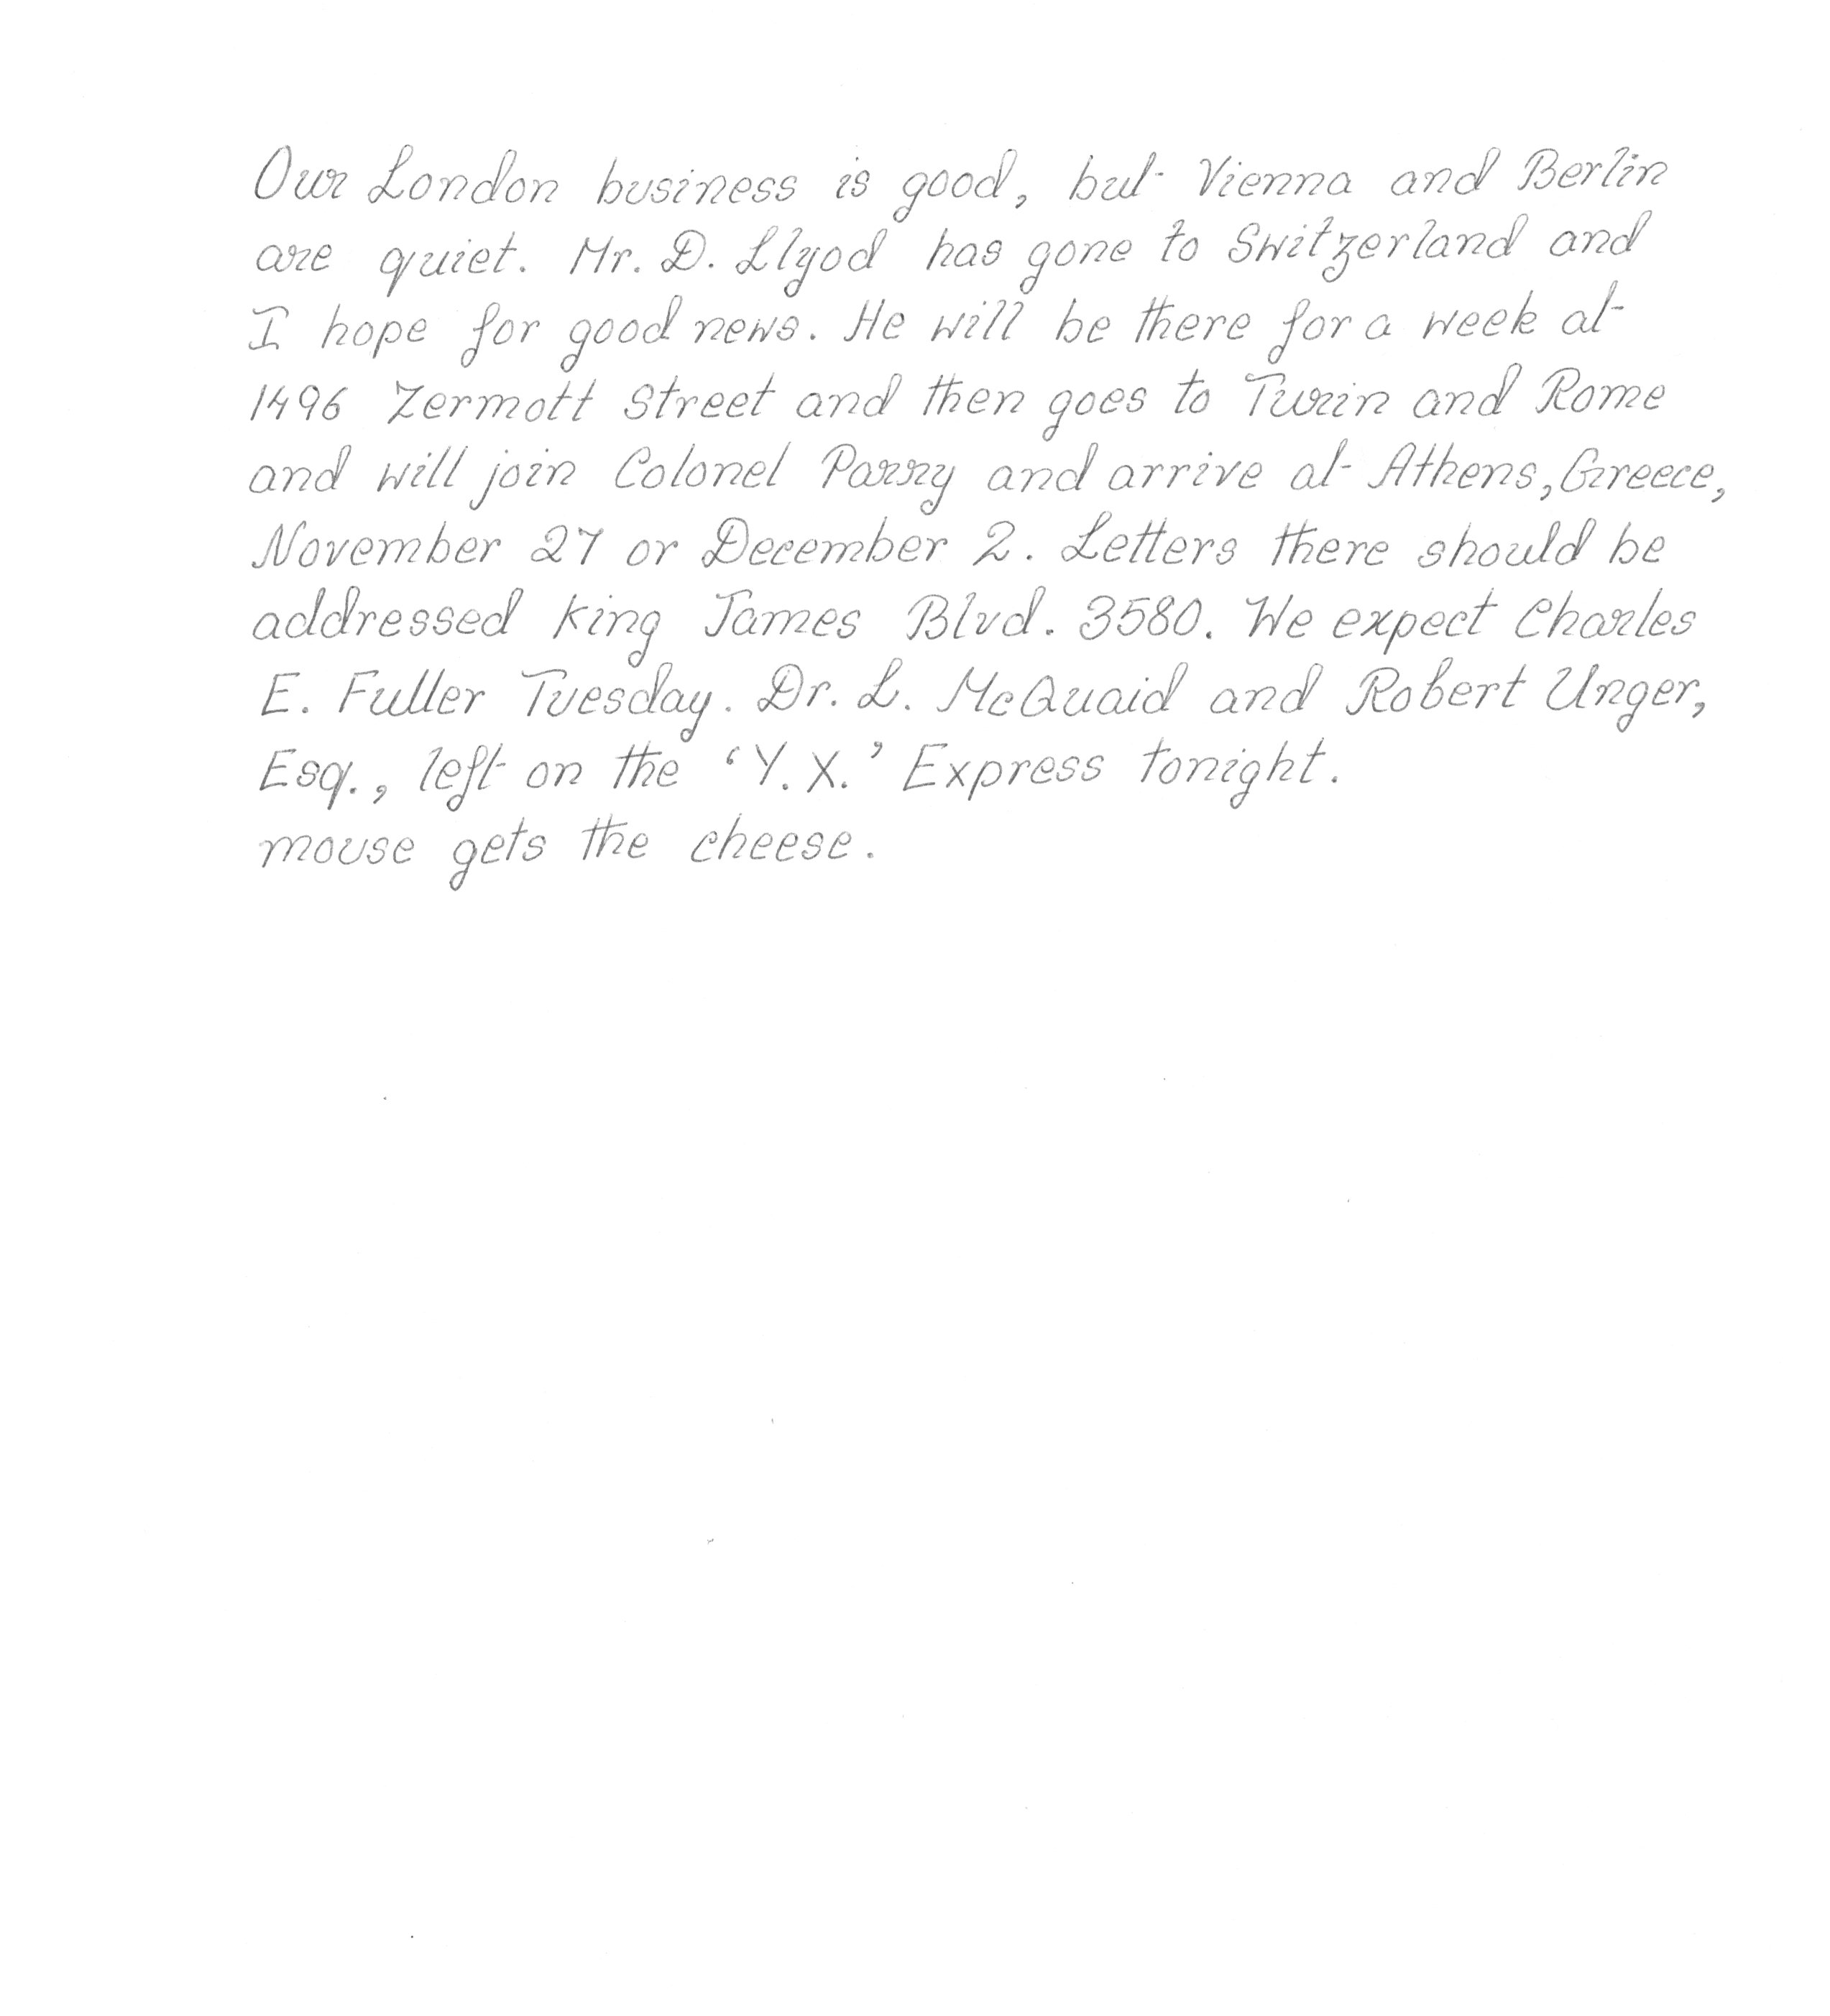 Our London business is good, but Vienna and Berlin
are quiet. Mr. D. Llyod has gone to Switzerland and
I hope for good news. He will be there for a week at
1496 Zermott Street and then goes to Turin and Rome
and will join Colonel Parry and arrive at Athens, Greece,
November 27 or December 2. Letters there should be
addressed King James Blvd. 3580. We expect Charles
E. Fuller Tuesday. Dr. L. McQuaid and Robert Unger,
Esq., left on the 'Y. X.' Express tonight.
mouse gets the cheese.